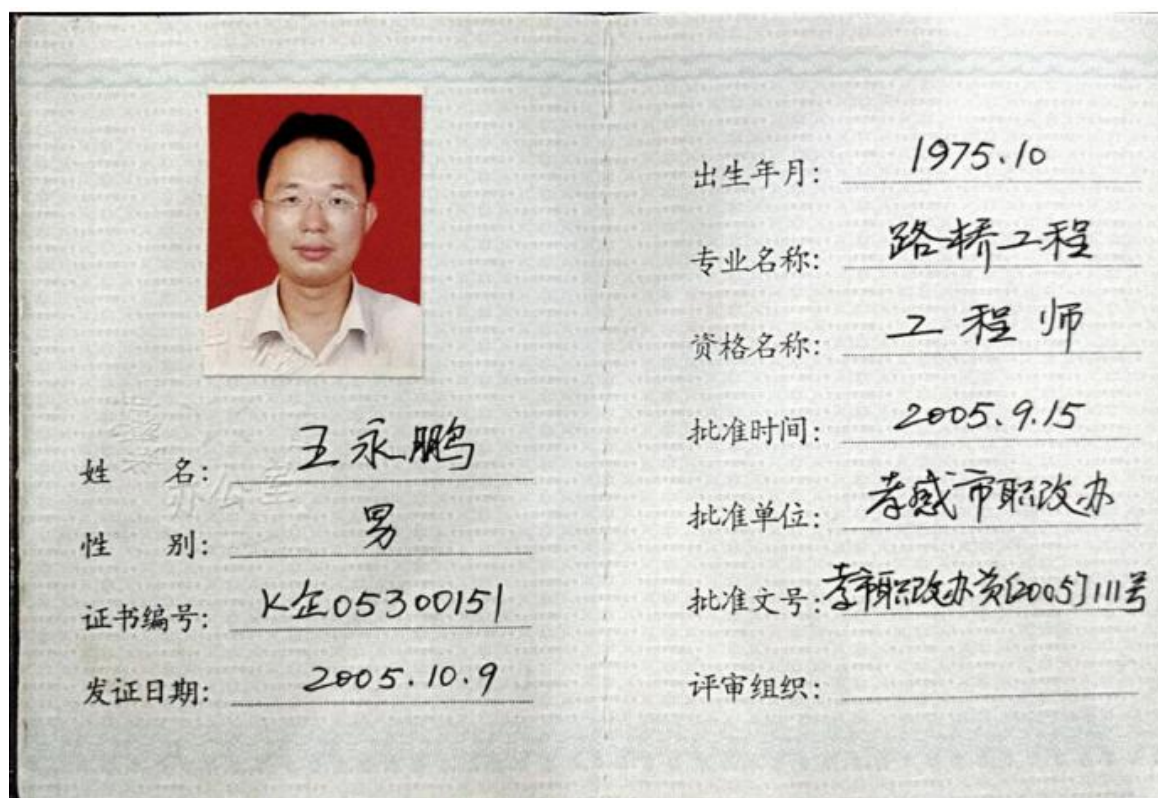 姓 名: 王永鹏
性 别: 男
证书编号: K企05300151
发证日期: 2005.10.9
办公室
出生年月: 1975.10
专业名称: 路桥工程
资格名称: 工程师
批准时间: 2005.9.15
批准单位: 孝感市职改办
批准文号: 孝市职改办资[2005]111号
评审组织: